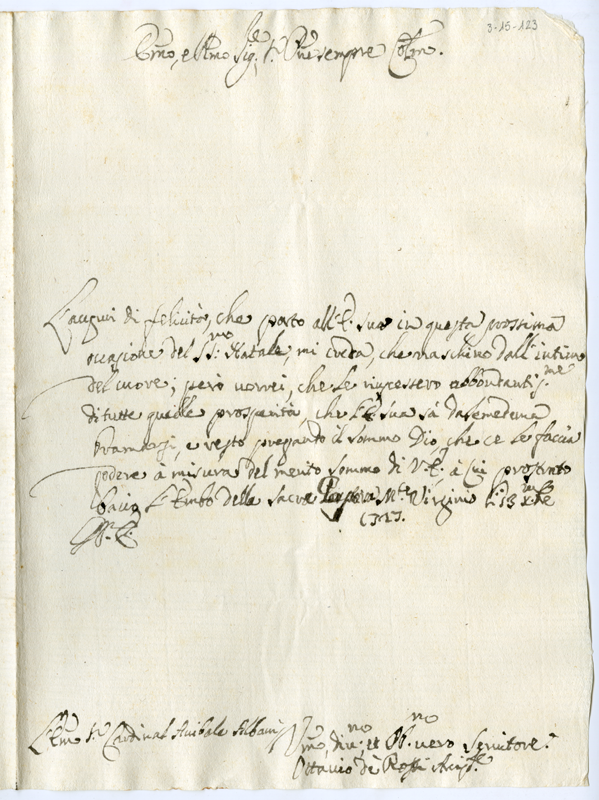 3-15-123
Emo, e Rmo Sig.r Sr. Pne sempre Colmo.
L'auguri di felicità, che porto all'E. sua in questa prossima
occasione del SS:mo Natale, mi creda, che naschino dall'intimo
del cuore; però vorrei, che le riuscissero abbondantissme
di tutte quelle prosperità, che l'E. sua sà da se medema
bramarsi, e resto pregando il sommo Dio, che ce le faccia
godere à misura del merito sommo di V. E. à cui prostrato
bacio l'Embo della sacra Porpora Mte Virginio li 13 Xbre
1727.
Di V. E.
L'Emo Sr. Cardinal Anibale Albani
Umo, div:, et Obl.mo vero Servitore
Ottavio de Rossi